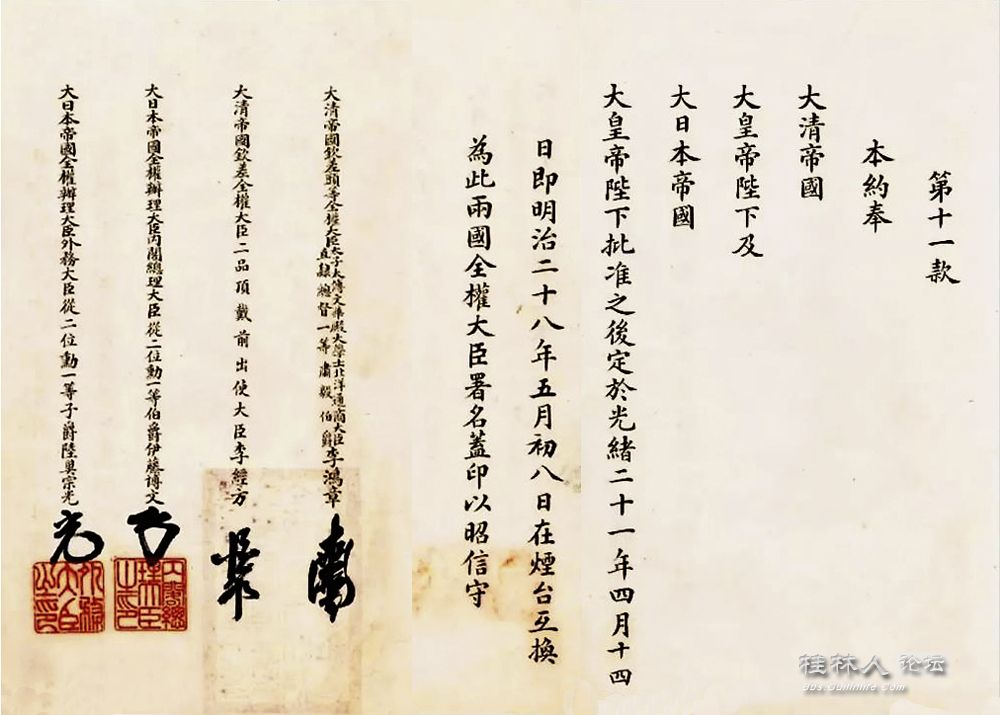 第十一款
本約奉
大清帝國
大皇帝陛下及
大日本帝國
大皇帝陛下批准之後定於光緒二十一年四月十四
日即明治二十八年五月初八日在煙台互換
為此兩國全權大臣署名蓋印以昭信守
大清帝國欽差頭等全權大臣太子太傅文華殿大學士北洋通商大臣直隸總督一等肅毅伯爵李鴻章
大清帝國欽差全權大臣二品頂戴前出使大臣李經方
大日本帝國全權辦理大臣內閣總理大臣從二位勳一等伯爵伊藤博文
大日本帝國全權辦理大臣外務大臣從二位勳一等子爵陸奧宗光
桂林人论坛
bbs.Guilinlife.Com